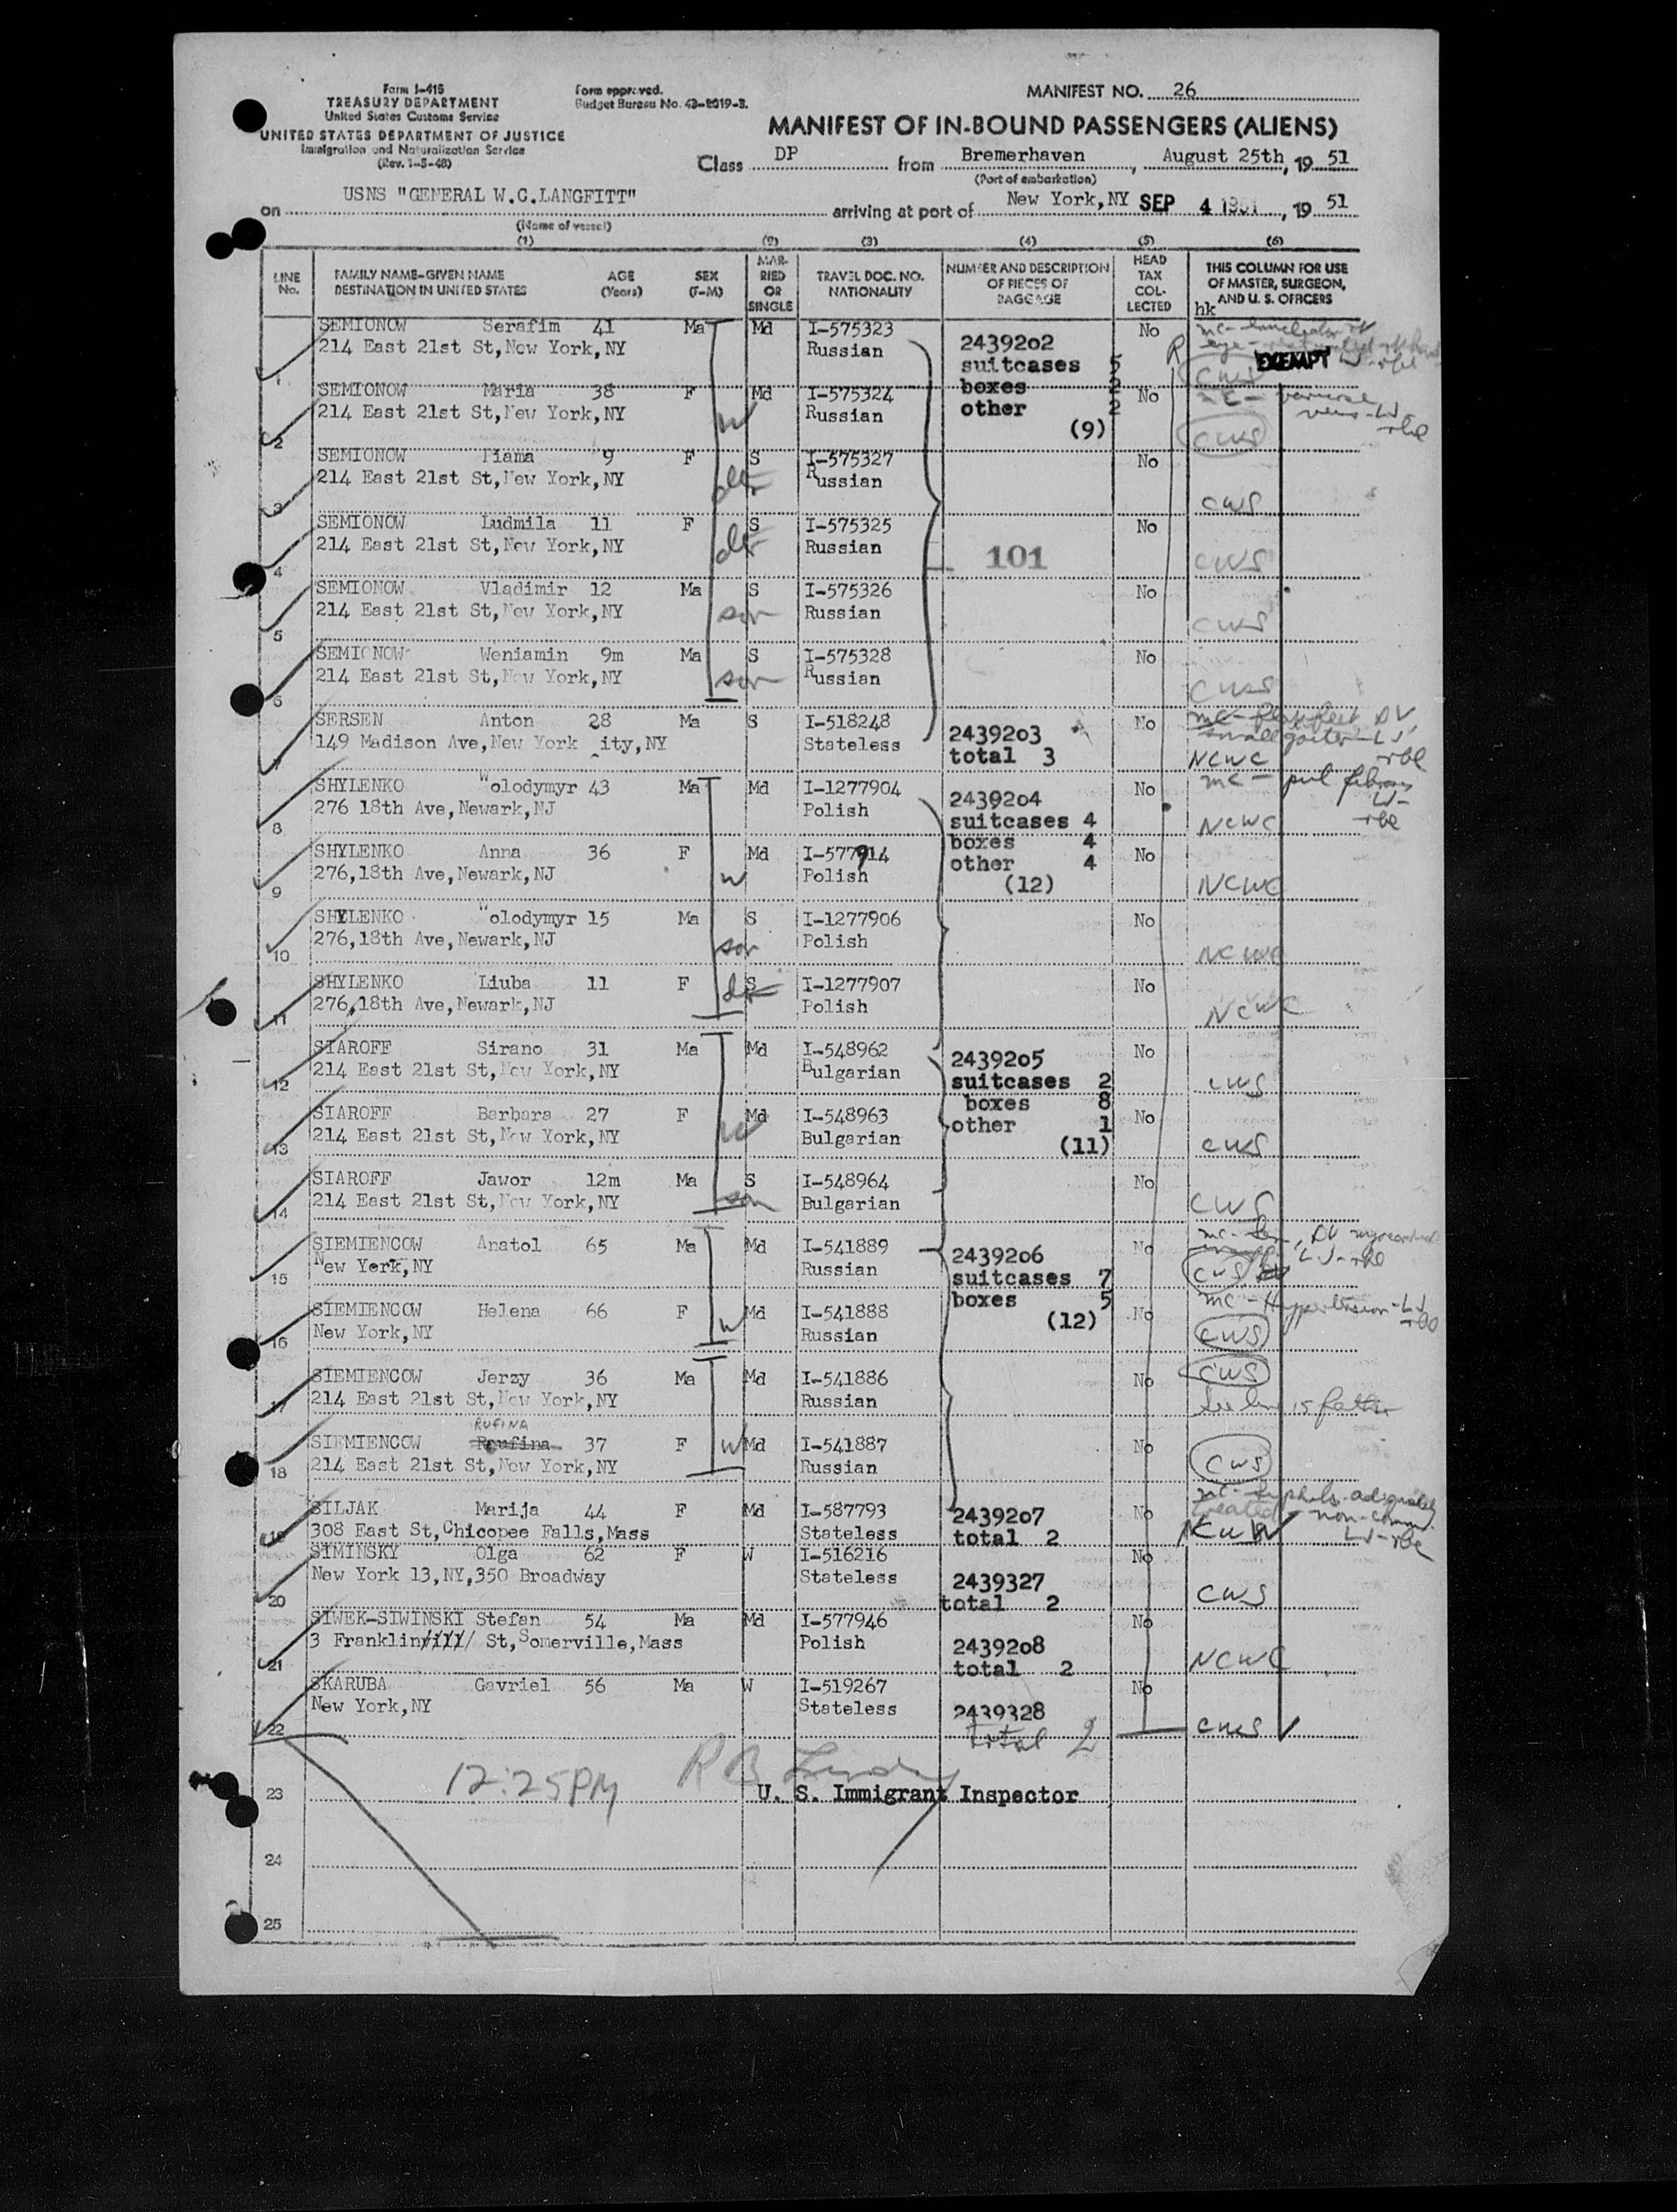 Form I-415
TREASURY DEPARTMENT
United States Customs Service
UNITED STATES DEPARTMENT OF JUSTICE
Immigration and Naturalization Service
(Rev. 1-5-48)
Form approved.
Budget Bureau No. 43-R019-3.
MANIFEST NO. 26
MANIFEST OF IN-BOUND PASSENGERS (ALIENS)
Class DP from Bremerhaven, August 25th, 19 51
(Port of embarkation)
on USNS "GENERAL W.C.LANGFITT" arriving at port of New York,NY SEP 4 1951, 19 51
(Name of vessel)
(1) (2) (3) (4) (5) (6)
LINE No. FAMILY NAME-GIVEN NAME DESTINATION IN UNITED STATES AGE (Years) SEX (F-M) MARRIED OR SINGLE TRAVEL DOC. NO. NATIONALITY NUMBER AND DESCRIPTION OF PIECES OF BAGGAGE HEAD TAX COLLECTED THIS COLUMN FOR USE OF MASTER, SURGEON, AND U. S. OFFICERS
hk
SEMIONOW Serafim 41 Ma Md I-575323 2439202 No mc-
214 East 21st St,New York,NY Russian suitcases 5 R eye- EXEMPT
1 CWS
SEMIONOW Maria 38 F Md I-575324 boxes 2 No mc- varicose
214 East 21st St,New York,NY w Russian other 2 veins-
2 (9) CWS
SEMIONOW Tiama 9 F S I-575327 No
214 East 21st St,New York,NY Russian
3 CWS
SEMIONOW Ludmila 11 F S I-575325 No
214 East 21st St,New York,NY Russian 101
4 CWS
SEMIONOW Vladimir 12 Ma S I-575326 No
214 East 21st St,New York,NY son Russian
5 CWS
SEMIONOW Weniamin 9m Ma S I-575328 No
214 East 21st St,New York,NY son Russian
6 CWS
SERSEN Anton 28 Ma S I-518248 2439203 No mc- flat feet
149 Madison Ave,New York ity,NY Stateless total 3 small goiter
7 NCWC
SHYLENKO Wolodymyr 43 Ma Md I-1277904 2439204 No mc- pul fibrosis
276 18th Ave,Newark,NJ Polish suitcases 4
8 NCWC
SHYLENKO Anna 36 F Md I-577914 boxes 4 No
276,18th Ave,Newark,NJ w Polish other 4
9 (12) NCWC
SHYLENKO Wolodymyr 15 Ma S I-1277906 No
276,18th Ave,Newark,NJ son Polish
10 NCWC
SHYLENKO Liuba 11 F S I-1277907 No
276,18th Ave,Newark,NJ Polish
11 NCWC
SIAROFF Sirano 31 Ma Md I-548962 2439205 No
214 East 21st St,New York,NY Bulgarian suitcases 2
12 boxes 8 CWS
SIAROFF Barbara 27 F Md I-548963 other 1 No
214 East 21st St,New York,NY w Bulgarian (11)
13 CWS
SIAROFF Jawor 12m Ma S I-548964 No
214 East 21st St,New York,NY son Bulgarian
14 CWS
SIEMIENCOW Anatol 65 Ma Md I-541889 2439206 No mc-
New York,NY Russian suitcases 7
15 CWS
SIEMIENCOW Helena 66 F Md I-541888 boxes 5 No mc- Hypertension
New York,NY w Russian (12)
16 CWS
SIEMIENCOW Jerzy 36 Ma Md I-541886 No CWS
214 East 21st St,New York,NY Russian
17 See line 15 father
RUFINA
SIEMIENCOW Roufina 37 F w Md I-541887 No
214 East 21st St,New York,NY Russian
18 CWS
SILJAK Marija 44 F Md I-587793 2439207 No mc- syphilis adequately
308 East St,Chicopee Falls,Mass Stateless total 2 treated non-comm.
19
SIMINSKY Olga 62 F W I-516216 No
New York 13,NY,350 Broadway Stateless 2439327
20 total 2 CWS
SIWEK-SIWINSKI Stefan 54 Ma Md I-577946 No
3 Franklin St,Somerville,Mass Polish 2439208
21 total 2 NCWC
SKARUBA Gavriel 56 Ma W I-519267 No
New York,NY Stateless 2439328
22 total 2 CWS
12:25PM
23 U. S. Immigrant Inspector
24
25